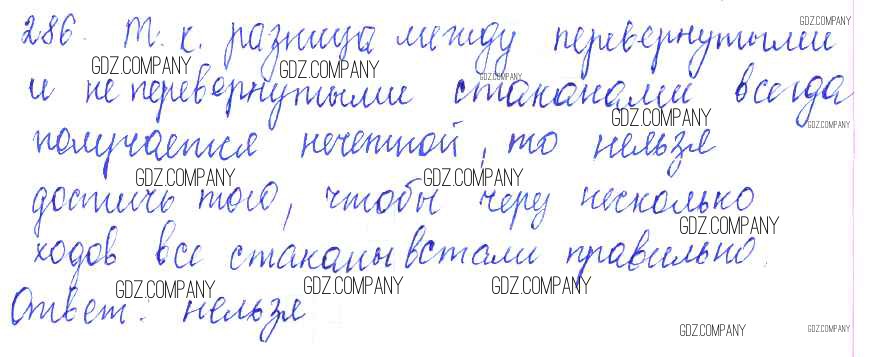 286. Т. к. разница между перевернутыми
и не перевернутыми стаканами всегда
получается нечетной, то нельзя
достичь того, чтобы через несколько
ходов все стаканы встали правильно.
Ответ: нельзя
GDZ.COMPANY
GDZ.COMPANY
GDZ.COMPANY
GDZ.COMPANY
GDZ.COMPANY
GDZ.COMPANY
GDZ.COMPANY
GDZ.COMPANY
GDZ.COMPANY
GDZ.COMPANY
GDZ.COMPANY
GDZ.COMPANY
GDZ.COMPANY
GDZ.COMPANY